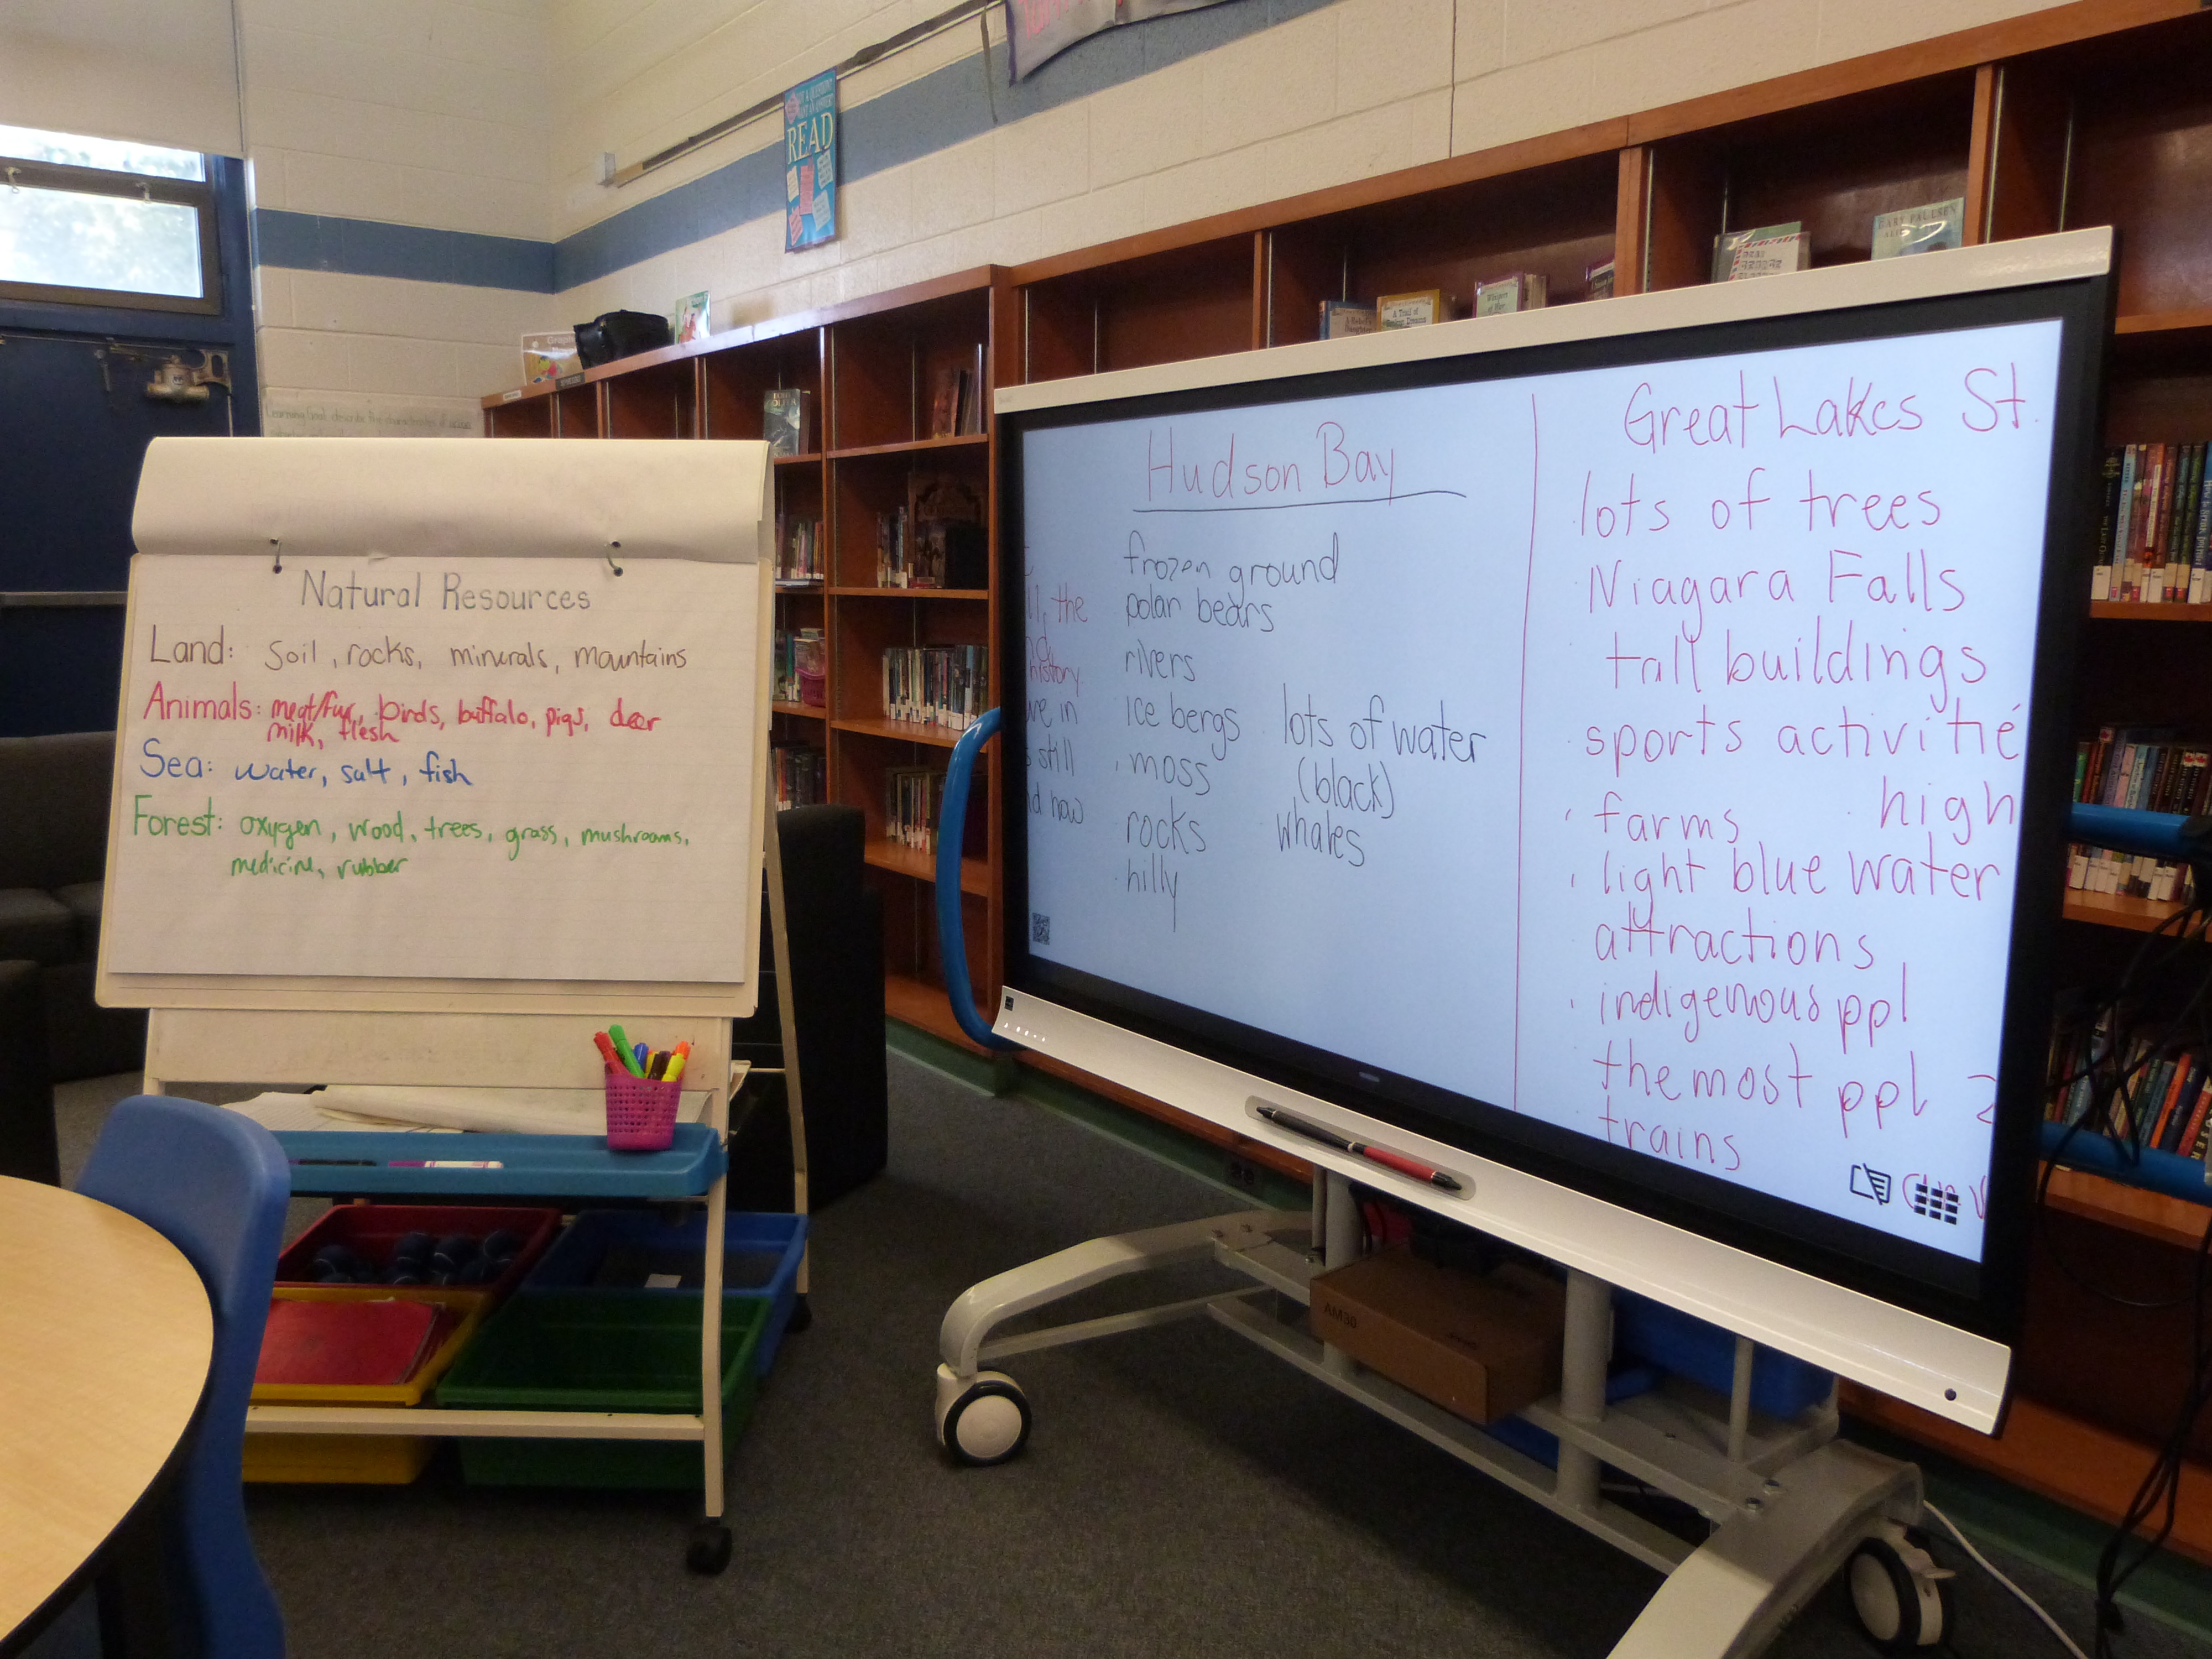 READ
Learning Goal: describe the characteristics of
Natural Resources
Land: soil, rocks, minerals, mountains
Animals: meat/fur, birds, buffalo, pigs, deer
milk, flesh
Sea: water, salt, fish
Forest: oxygen, wood, trees, grass, mushrooms,
medicine, rubber
the
history
ve in
still
now
Hudson Bay
frozen ground
polar bears
rivers
ice bergs
moss
rocks
hilly
lots of water
(black)
whales
Great Lakes St.
lots of trees
Niagara Falls
tall buildings
sports activitie
farms high
light blue water
attractions
indigenous ppl
the most ppl 2
trains
GARY PAULSEN
A Trail of
AM30